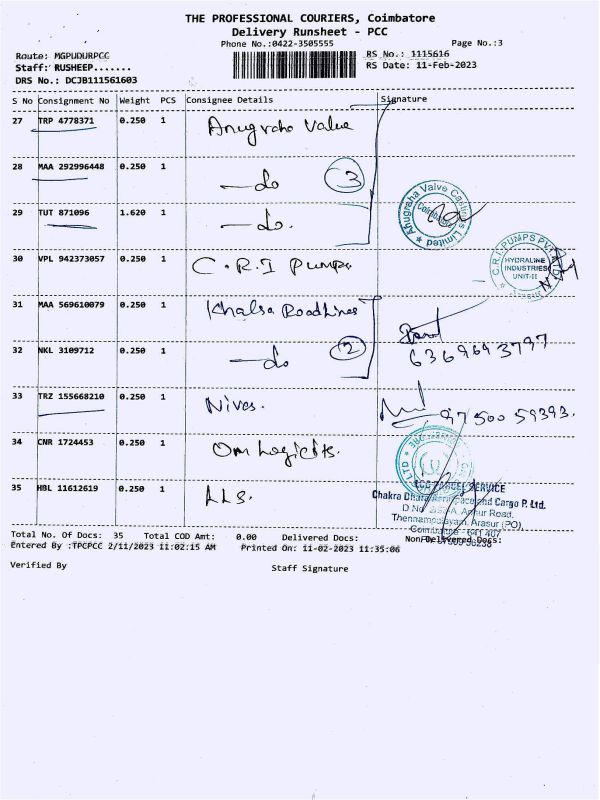 THE PROFESSIONAL COURIERS, Coimbatore
Delivery Runsheet - PCC
Phone No.:0422-3505555 Page No.:3
Route: MGPUDURPCC RS No.: 1115616
Staff: RUSHEEP....... RS Date: 11-Feb-2023
DRS No.: DCJB111561603
S No Consignment No Weight PCS Consignee Details Signature
27 TRP 4778371 0.250 1 Anugraha Value
28 MAA 292996448 0.250 1 —do 3
29 TUT 871096 1.620 1 —do.
Anugraha Valve Castings Limited
Coimbatore
30 VPL 942373057 0.250 1 C.R.I Pumps
C.R.I. PUMPS PVT LTD
HYDRALINE
INDUSTRIES
UNIT-II
31 MAA 569610079 0.250 1 Khalsa Roadlines
32 NKL 3109712 0.250 1 —do 2 6369693797
33 TRZ 155668210 0.250 1 Nives. 97500 59393.
34 CNR 1724453 0.250 1 Om Logicits.
35 HBL 11612619 0.250 1 LLS.
PARCEL SERVICE
Chakra Dhara Aerospace and Cargo P. Ltd.
Road,
Thennampalayam, Arasur (PO),
Coimbatore - 641 407
Total No. Of Docs: 35 Total COD Amt: 0.00 Delivered Docs: Non-Delivered Docs:
Entered By :TPCPCC 2/11/2023 11:02:15 AM Printed On: 11-02-2023 11:35:06
Verified By Staff Signature